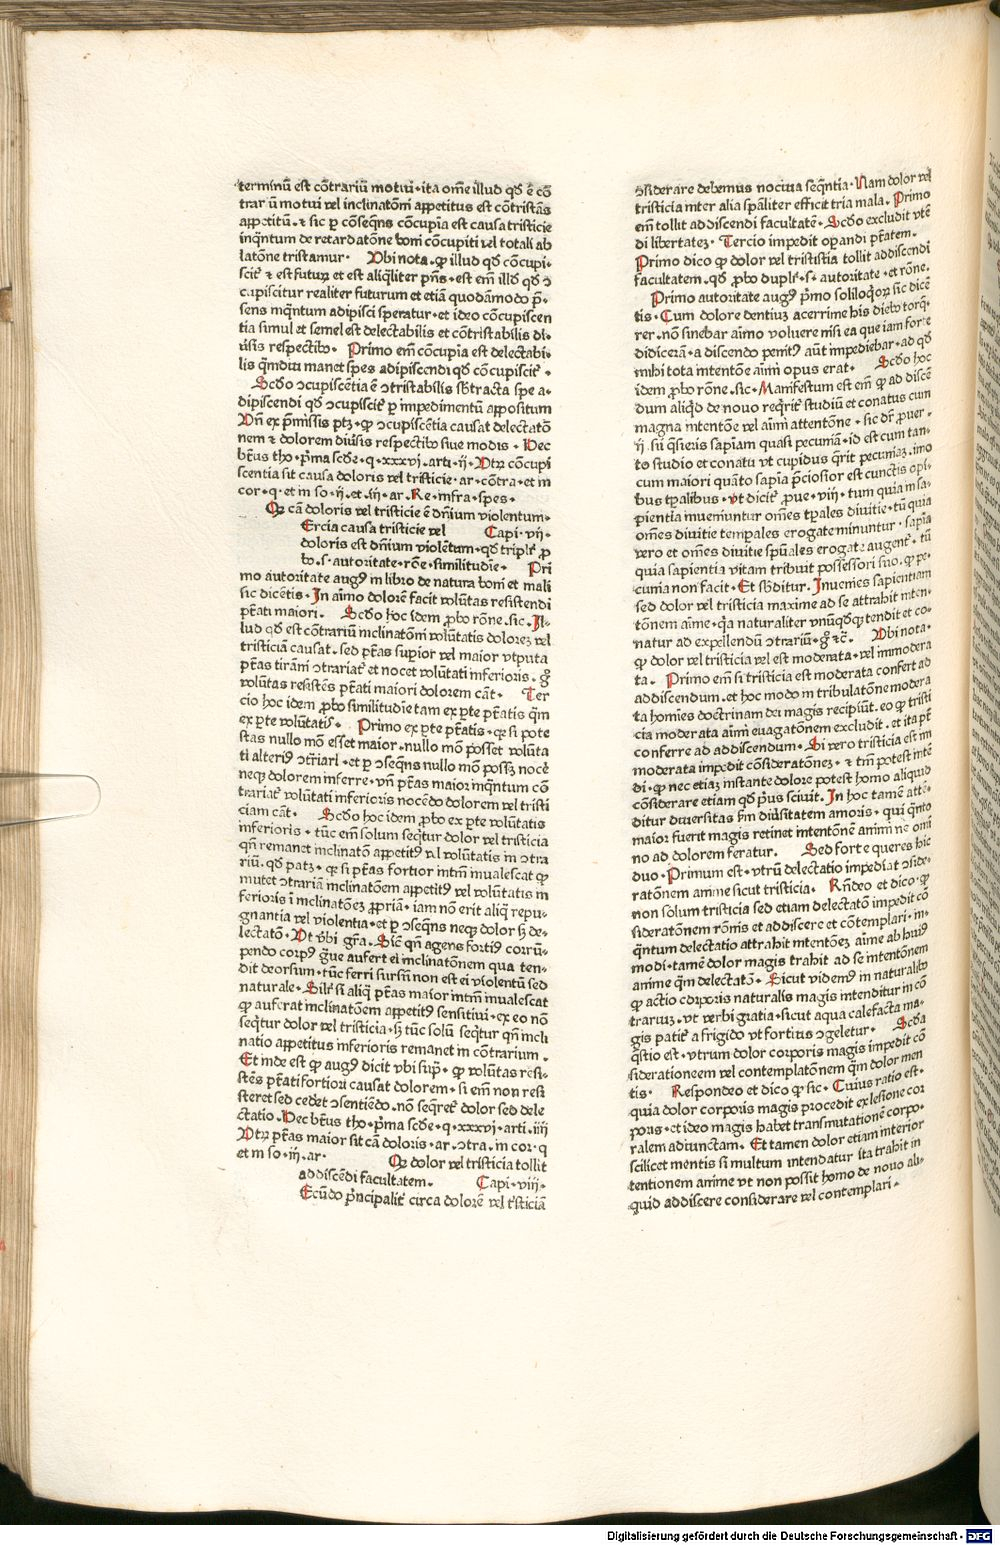 terminū est cōtrariū motui · ita om̄e illud qd̄ ē cō
trariū motui vel inclinatōni appetitus est cōtristās
appetitū · et sic p cōseqn̄s cōcupīa est causa tristicie
inqn̄tum de retardatōne boni cōcupiti vel totali ab
latōne tristamur · Ubi nota · ꝙ illud qd̄ cōcupi⸗
scit᷑ et est futuꝝ et est aliqͥliter pn̄s · est em̄ illd̄ qd̄ ↄ
cupiscitur realiter futurum et etiā quodāmodo p̄⸗
sens inqn̄tum adipisci speratur · et ideo cōcupiscen
tia simul et semel est delectabilis et cōtristabilis di⸗
uisis respectibꝰ · Primo em̄ cōcupīa est delectabi⸗
lis qm̄diu manet spes adipiscendi qd̄ cōcupiscit᷑ ·
Scd̄o ↄcupiscētia ē ↄtristabilis sb̄tracta spe a⸗
dipiscendi qd̄ ↄcupiscit᷑ p impedimentū appositum
Un̄ ex p̄missis ptꝫ · ꝙ ↄcupiscētia causat delectatō
nem et dolorem diuīsis respectibꝰ siue modis · Hec
btūs tho · pͥma scd̄e · q · xxxvi · arti · ij · Utꝝ cōcupi
scentia sit causa doloris vel tristicie · ar · cōtra · et in
cor · q · et in so · ij · et · iij · ar · Re · infra · spes ·
Qꝫ cā doloris vel tristicie ē dn̄ium violentum ·
Ercia causa tristicie vel Capi · vij ·
doloris est dn̄ium violētum · qd̄ triplr̄ ꝓ
bo · s · autoritate · rōe · similitudīe · Pri
mo autoritate augꝰ in libro de natura boni et mali
sic dicētis · In aīmo dolorē facit volūtas resistendi
ptāti maiori · Scd̄o hoc idem ꝓbo rōne · sic · Il⸗
lud qd̄ est cōtrariū inclinatōni volūtatis doloreꝫ vel
tristiciā causat · sed ptās supior vel maior vtputa
ptās tirāni ↄtrariat᷑ et nocet volūtati inferioris · gͦ
volūtas resistēs ptāti maiori dolorem cāt · Ter
cio hoc idem ꝓbo similitudīe tam ex pte ptātis qm̄
ex pte volūtatis · Primo ex pte ptātis · qꝫ si pote
stas nullo mō esset maior · nullo mō posset volūta
ti alteriꝰ ↄtriari · et p ↄseqn̄s nullo mō possꝫ nocē
neqꝫ dolorem inferre · vn̄ ptās maior inqn̄tum cō
trariat᷑ volūtati inferioris nocēdo dolorem vel tristi
ciam cāt · Scd̄o hoc idem ꝓbo ex pte volūtatis
inferioris · tūc em̄ solum seqͥtur dolor vel tristicia
qn̄ remanet inclinatō appetitꝰ vel volūtatis in ↄtra
riū · qd̄ patꝫ · qꝫ si ptās fortior intm̄ inualescat ꝙ
mutet ↄtrariā inclinatōem appetitꝰ vel volūtatis in
ferioris ī inclinatōeꝫ ꝓpriā · iam nō erit aliq̄ repu⸗
gnantia vel violentia · et p ↄseqn̄s neqꝫ dolor sꝫ de⸗
lectatō · Ut vbi grā · Sic qn̄ agens fortiꝰ corrū⸗
pendo corpꝰ gͣue aufert ei inclinatōnem qua ten⸗
dit deorsum · tūc ferri sursūm non est ei violentū sed
naturale · Silr̄ si aliq̄ ptās maior intm̄ inualescat
ꝙ auferat inclinatōem appetitꝰ sensitiui · ex eo nō
seqͥtur dolor vel tristicia · sꝫ tūc solū seqͥtur qn̄ incli
natio appetitus inferioris remanet in cōtrarium ·
Et inde est ꝙ augꝰ dicit vbi supͣ · ꝙ volūtas resi⸗
stēs ptāti fortiori causat dolorem · si em̄ non resi
steret sed cedet ↄsentiēdo · nō seqͥret᷑ dolor sed dele
ctatio · Hec btūs tho · pͥma scd̄e · q · xxxvj · arti · iiij
Utꝝ ptās maior sit cā doloris · ar · ↄtra · in cor · q
et in so · iij · ar ·
Qꝫ dolor vel tristicia tollit
addiscēdi facultatem · Capi · viij ·
Ecūdo pͥncipalit᷑ circa dolorē vel tͥsticiā
ↄsiderare debemus nociua seqn̄tia · Nam dolor vel
tristicia inter alia spāliter efficit tria mala · Primo
em̄ tollit addiscendi facultatē · Scd̄o excludit vtē
di libertateꝫ · Tercio impedit oꝑandi ptātem ·
Primo dico ꝙ dolor vel trististia tollit addiscendi
facultatem · qd̄ ꝓbo duplr̄ · s · autoritate · et rōne ·
Primo autoritate augꝰ pͥmo soliloqͥoꝝ sic dicē
tis · Cum dolore dentiuꝫ acerrime his diebꝰ torq̄⸗
rer · nō sinebar aīmo voluere nisi ea que iam forte
didicerā · a discendo penitꝰ aūt impediebar · ad qd̄
mihi tota intentōe aīmi opus erat · Scd̄o hoc
idem ꝓbo rōne · sic · Manifestum est em̄ ꝙ ad discē
dum aliqd̄ de nouo reqͥrit᷑ studiū et conatus cum
magna intentōe vel aīmi attentōne · sic dr̄ ꝓuer ·
ij · Si qͥsieris sapīam quasi pecuniā · id est cum tan⸗
to studio et conatu vt cupidus qͥrit pecuniaꝫ · imo
cum maiori quāto sapīa pͥciosior est cunctis opi⸗
bus tꝑalibus · vt dicit᷑ ꝓue · viij · tum quia in sa⸗
pientia inueniuntur om̄es tꝑales diuitie · tū quia
om̄es diuitie temꝑales erogate minuntur · sapīa
vero et om̄es diuitie spūales erogate augent᷑ · tū
quia sapientia vitam tribuit possessori suo · ꝙ pe⸗
cunia non facit · Et sb̄ditur · Inuenies sapientiam
sed dolor vel tristicia maxime ad se attrahit inten⸗
tōnem aīme · qͥa naturaliter vnūqd̄qꝫ tendit et co⸗
natur ad expellendū ↄtrariū · gͦ ⁊c̄ · Ubi nota ·
ꝙ dolor vel tristicia vel est moderata · vel immodera
ta · Primo em̄ si tristicia est moderata confert ad
addiscendum · et hoc modo in tribulatōne modera
ta homīes doctrinam dei magis recipiūt · eo ꝙ tristi
cia moderata aīmi euagatōnem excludit · et ita pt̄
conferre ad addiscendum · Si vero tristicia est im
moderata impedit cōsideratōneꝫ · et tm̄ potest intē
di · ꝙ nec etiaꝫ instante dolore potest homo aliquid
cōsiderare etiam qd̄ pͥus sciuit · In hoc tamē attē⸗
ditur diuersitas km̄ diūsitatem amoris · qui qn̄to
maior fuerit magis retinet intentōnē animi ne om̄i
no ad dolorem feratur · Sed forte queres hic
duo · Primum est · vtrū delectatio impediat ↄside⸗
ratōnem anime sicut tristicia · Rn̄deo et dico · ꝙ
non solum tristicia sed etiam delectatō impedit cō
sideratōnem rōnis et addiscere et cōtemplari · in⸗
qn̄tum delectatio attrahit intentōeꝫ aīme ab huiꝰ
modi · tamē dolor magis trahit ad se intentōnem
anime qm̄ delectatō · Sicut videmꝰ in naturalibꝰ
ꝙ actio corporis naturalis magis intenditur in cō
trariuꝫ · vt verbi gratia · sicut aqua calefacta ma⸗
gis patit᷑ a frigido vt fortius ↄgeletur · Scd̄a
qͥstio est · vtrum dolor corporis magis impedit cō
siderationeem vel contemplatōnem qm̄ dolor men
tis · Respondeo et dico ꝙ sic · Cuius ratio est ·
quia dolor corporis magis procedit ex lesione cor
poris · et ideo magis habet transmutationē corpo⸗
ralem adiunctam · Et tamen dolor etiam interior
scilicet mentis si multum intendatur ita trahit in
tentionem anime vt non possit homo de nouo ali⸗
quid addiscere considerare vel contemplari ·
Digitalisierung gefördert durch die Deutsche Forschungsgemeinschaft - DFG